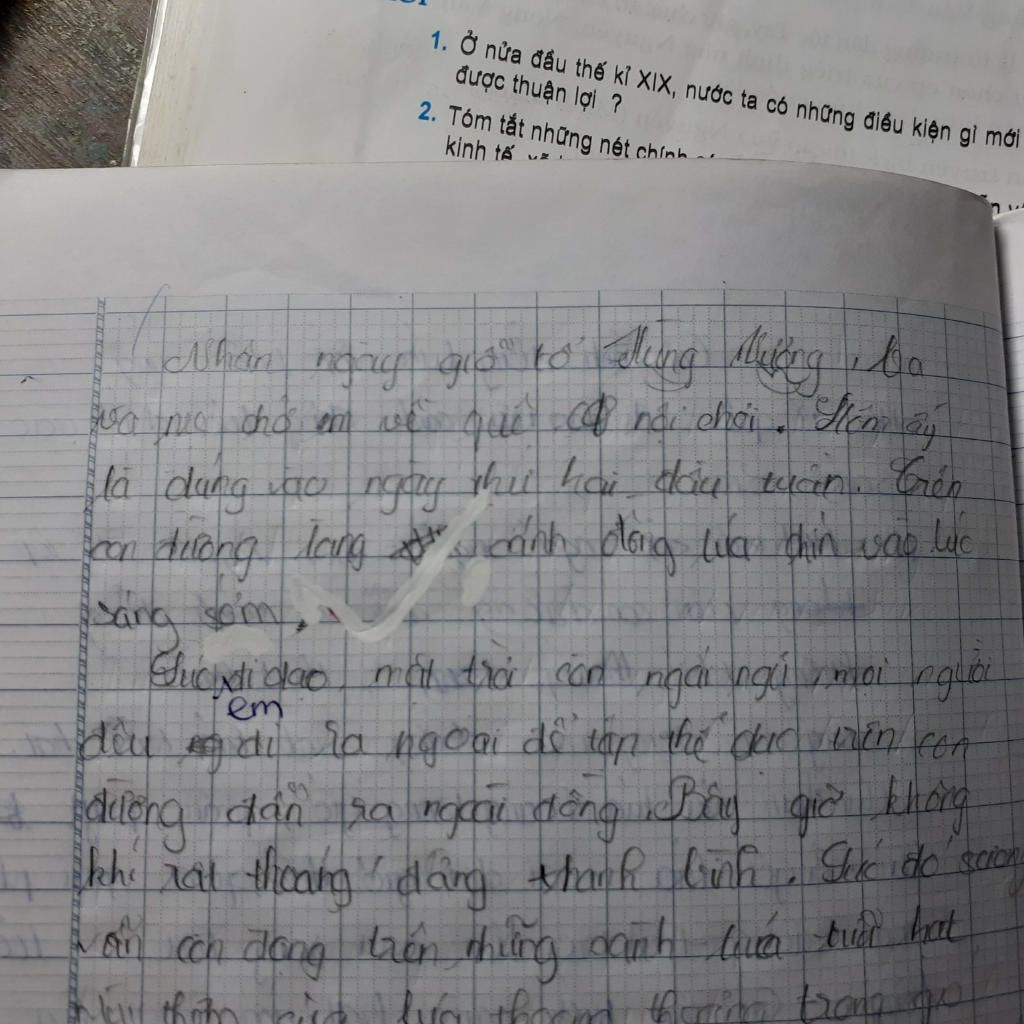 1. Ở nửa đầu thế kỉ XIX, nước ta có những điều kiện gì mới
được thuận lợi ?
2. Tóm tắt những nét chính
kinh tế
Nhân ngày giỗ tổ Hùng Vương, ba
và mẹ chở em về quê nội chơi. Hôm ấy
là đúng vào ngày thứ hai đầu tuần. Trên
con đường làng cánh đồng lúa chín vào lúc
sáng sớm.
Lúc đi dạo, mặt trời còn ngái ngủ, mọi người
em
đều đi ra ngoài để tập thể dục trên con
đường dẫn ra ngoài đồng. Bây giờ không
khí rất thoáng đãng thanh bình. Lúc đó sương
vẫn còn đọng trên những lúa hạt
thơm của lúa thoang thoảng trong